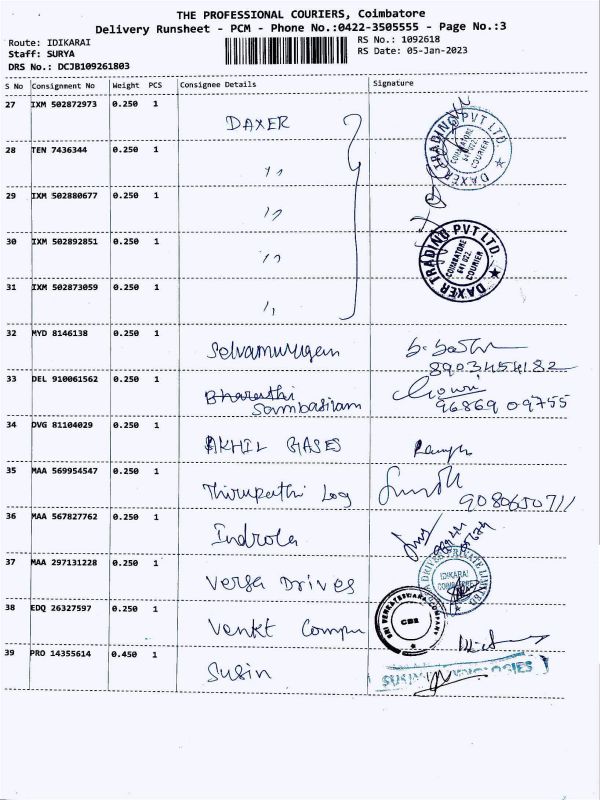 THE PROFESSIONAL COURIERS, Coimbatore
Delivery Runsheet - PCM - Phone No.:0422-3505555 - Page No.:3
Route: IDIKARAI
RS No.: 1092618
Staff: SURYA
RS Date: 05-Jan-2023
DRS No.: DCJB109261803
S No Consignment No Weight PCS Consignee Details Signature
27 IXM 502872973 0.250 1 DAXER
DAXER TRADING PVT LTD.
COIMBATORE
641 022.
COURIER
28 TEN 7436344 0.250 1 ,,
29 IXM 502880677 0.250 1 ,,
30 IXM 502892851 0.250 1 ,,
DAXER TRADING PVT LTD.
COIMBATORE
641 022.
COURIER
31 IXM 502873059 0.250 1 ,,
32 MYD 8146138 0.250 1 Selvamurugan
8903454182
33 DEL 910061562 0.250 1 Bharathi
Sambasivam
96869 09755
34 DVG 81104029 0.250 1 AKHIL GASES
35 MAA 569954547 0.250 1 Thirupathi Log
9080650711
36 MAA 567827762 0.250 1 Indrola
37 MAA 297131228 0.250 1 Versa Drives
DRIVES PRIVATE LIMITED
IDIKARAI
38 EDQ 26327597 0.250 1 Venkt Compu
SRI VENKATESWARA COMPANY
CBE
39 PRO 14355614 0.450 1 Susin